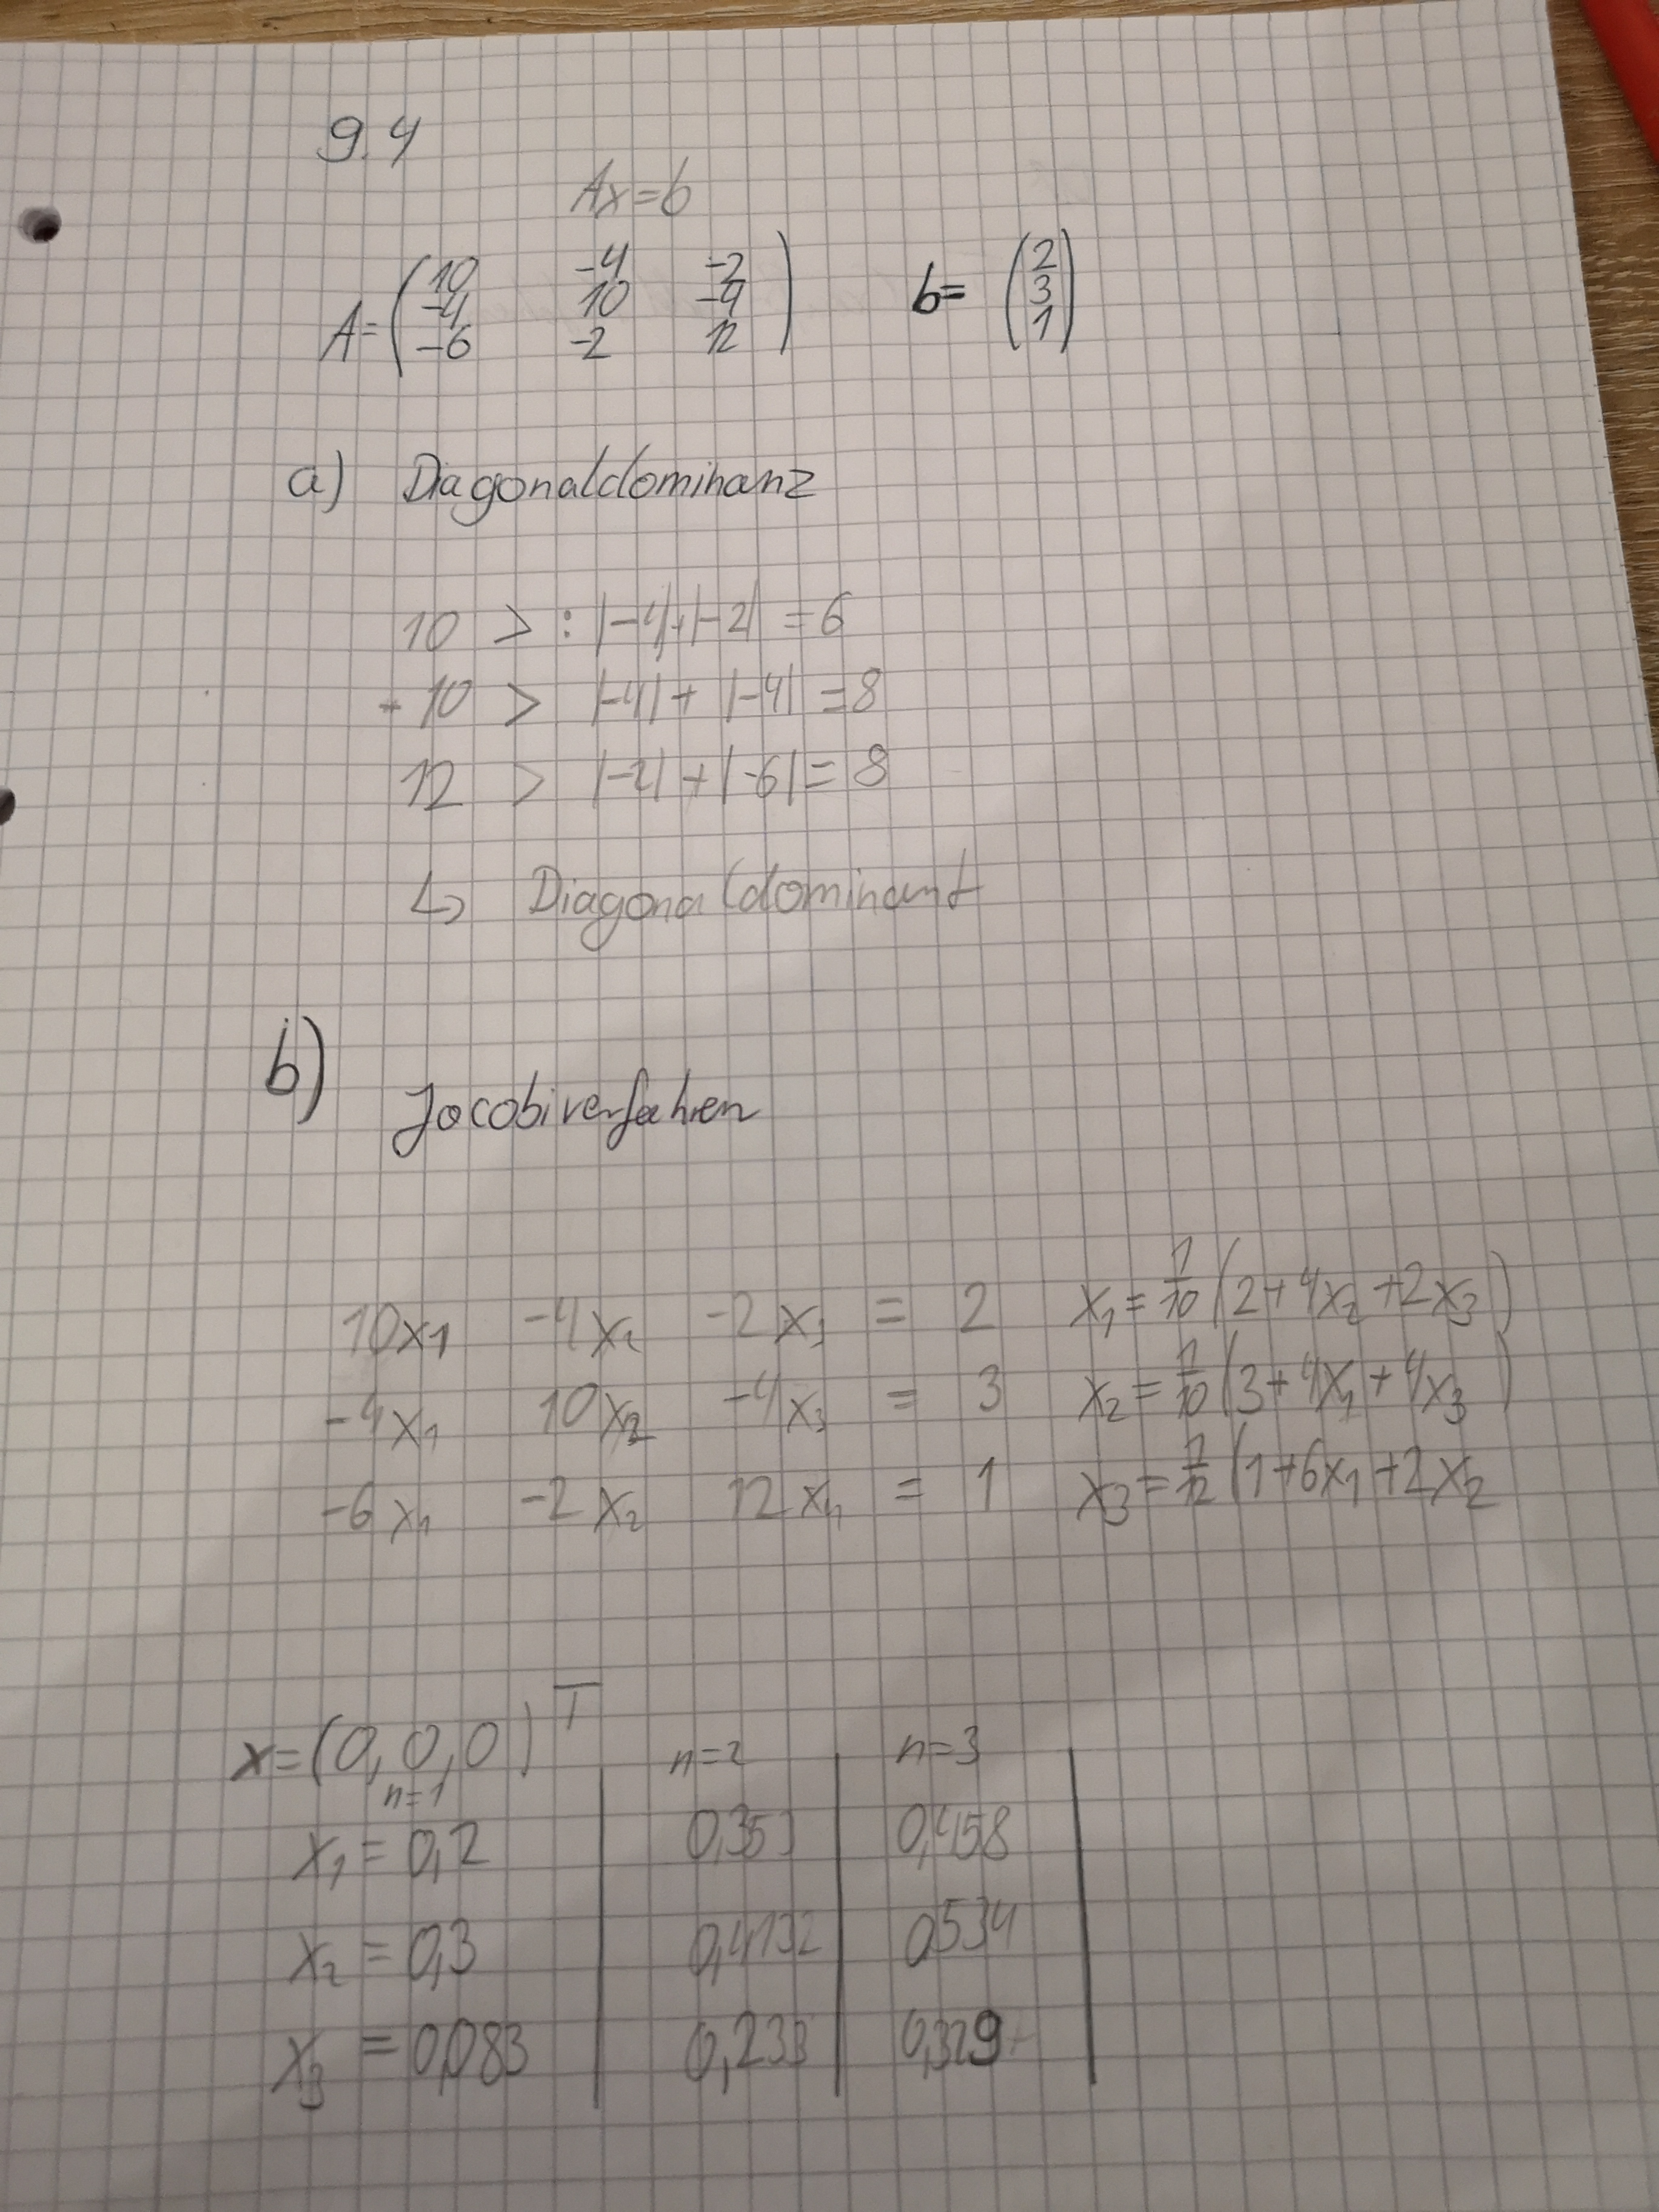 9.4
Ax=b
A= ( 10 -4 -2 ) b= ( 2 )
( -4 10 -4 ) ( 3 )
( -6 -2 12 ) ( 1 )
a) Diagonaldominanz
10 > : |-4|+|-2| = 6
10 > |-4| + |-4| = 8
12 > |-2| + |-6| = 8
↳ Diagonaldominant
b)
Jacobiverfahren
10x₁ -4x₂ -2x₃ = 2 x₁ = 1/10 (2+4x₂+2x₃)
-4x₁ 10x₂ -4x₃ = 3 x₂ = 1/10 (3+4x₁+4x₃)
-6x₁ -2x₂ 12x₄ = 1 x₃ = 1/12 (1+6x₁+2x₂
x=(0,0,0)ᵀ n=2 n=3
n=1
x₁ = 0,2 0,353 0,458
x₂ = 0,3 0,4132 0,534
x₃ = 0,083 0,233 0,329